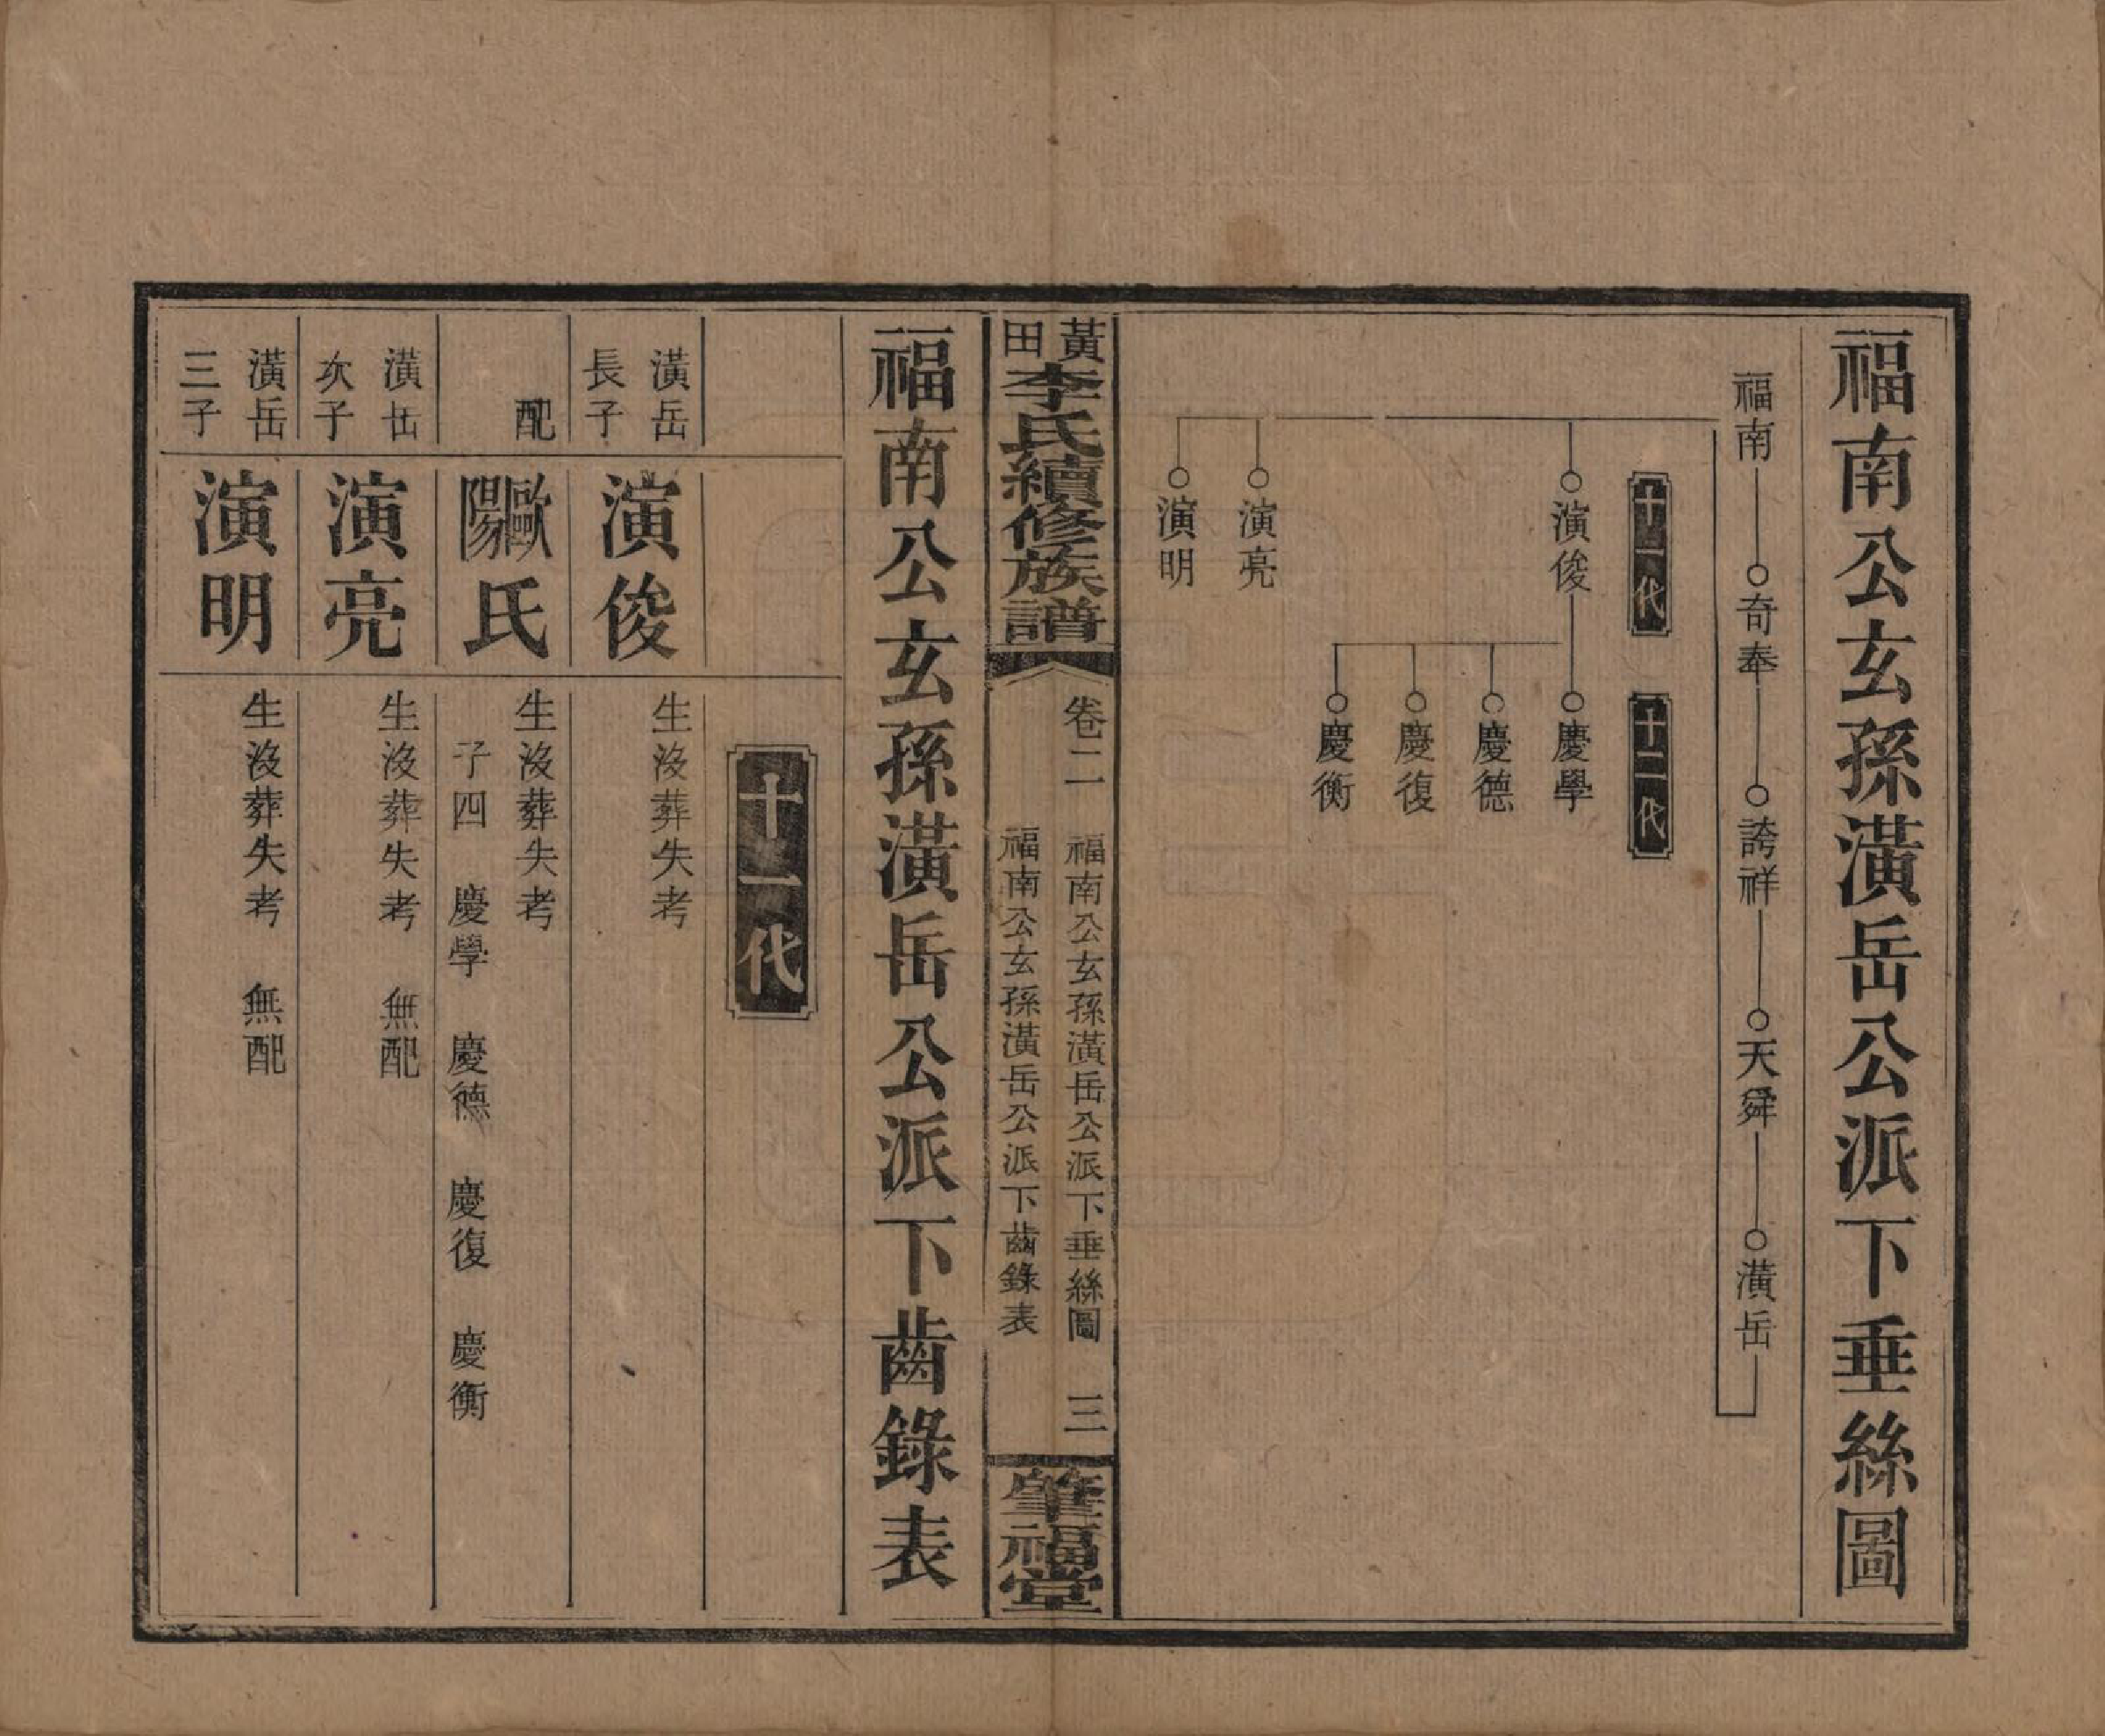 福南公玄孫潢岳公派下垂絲圖
福南 奇奉 誇祥 天舜 潢岳
十一代 十二代
演俊 慶學
慶德
慶復
慶衡
演亮
演明
黃田李氏續修族譜 卷二 福南公玄孫潢岳公派下垂絲圖 三 肇福堂
福南公玄孫潢岳公派下齒錄表
福南公玄孫潢岳公派下齒錄表
十一代
潢岳長子 演俊 生沒葬失考
配 歐陽氏 生沒葬失考
子四 慶學 慶德 慶復 慶衡
潢岳次子 演亮 生沒葬失考 無配
潢岳三子 演明 生沒葬失考 無配